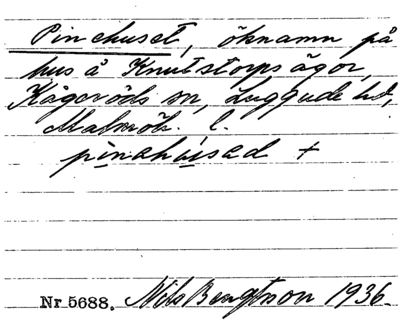 Pinehuset, öknamn på
hus å Knutstorps ägor,
Kågeröds sn, Luggude hd,
Malmöh. l.
pinahused +
Nr 5688. Nils Bengtson 1936.